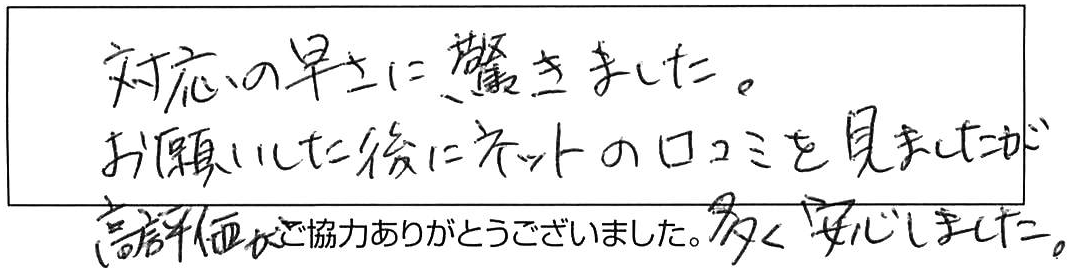 対応の早さに驚きました。
お願いした後にネットの口コミを見ましたが
高評価がご協力ありがとうございました。多く安心しました。